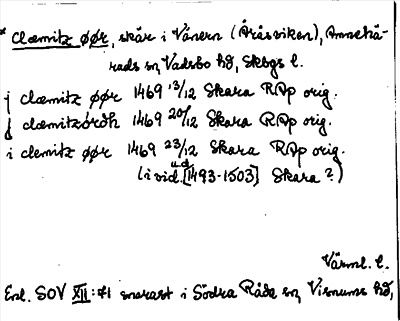 * Clæmitz øør, skär i Vänern (Åråsviken), Amnehä-
rads sn, Vadsbo hd, Skbgs l.
i clæmitz øør 1469 13/12 Skara RAp orig.
i clæmitzórdh 1469 20/12 Skara RAp orig.
i clemitz øør 1469 23/12 Skara RAp orig.
(i vid. u.d. [1493-1503] Skara?)
Värml. l.
Enl. SOV XII:41 snarast i Södra Råda sn, Visnums hd,